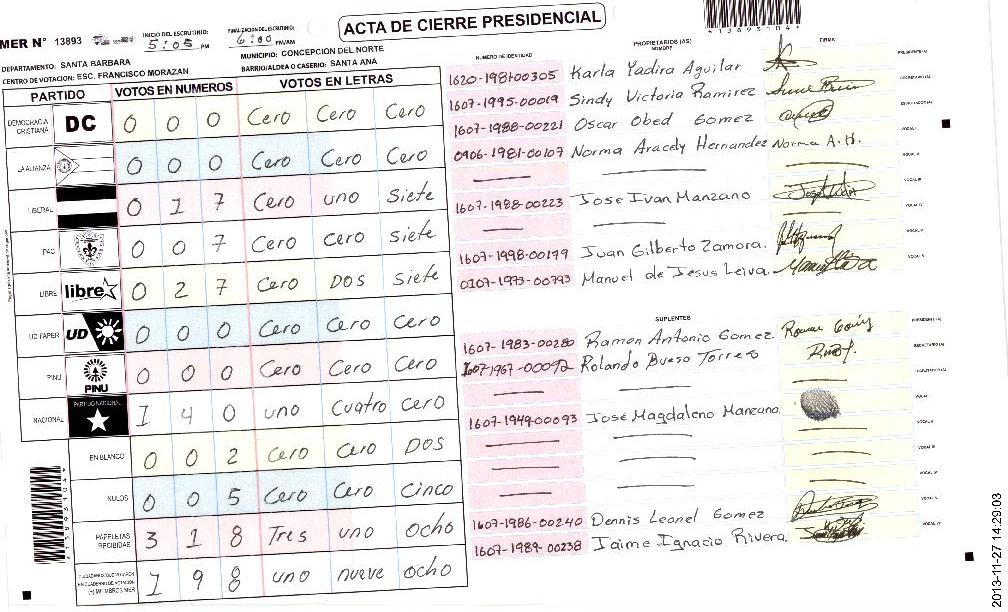 ACTA DE CIERRE PRESIDENCIAL
MER N° 13893
INICIO DEL ESCRUTINIO: 5:05 PM
FINALIZACION DEL ESCRUTINIO: 6:00 PM/AM
DEPARTAMENTO: SANTA BARBARA
MUNICIPIO: CONCEPCION DEL NORTE
CENTRO DE VOTACION: ESC. FRANCISCO MORAZAN
BARRIO/ALDEA O CASERIO: SANTA ANA
PARTIDO VOTOS EN NUMEROS VOTOS EN LETRAS
DEMOCRACIA CRISTIANA DC 0 0 0 Cero Cero Cero
LA ALIANZA 0 0 0 Cero Cero Cero
LIBERAL 0 1 7 Cero uno Siete
PAC 0 0 7 Cero Cero Siete
LIBRE libre 0 2 7 Cero DOS Siete
UD-FAPER UD 0 0 0 Cero Cero Cero
PINU PINU 0 0 0 Cero Cero Cero
NACIONAL PARTIDO NACIONAL 1 4 0 uno Cuatro Cero
EN BLANCO 0 0 2 Cero Cero DOS
NULOS 0 0 5 Cero Cero Cinco
PAPELETAS RECIBIDAS 3 1 8 Tres uno ocho
CIUDADANOS QUE VOTARON EN CUADERNO DE VOTACION (+) MIEMBROS MER 1 9 8 uno nueve ocho
NUMERO DE IDENTIDAD PROPIETARIOS (AS) NOMBRE FIRMA
1620-1981-00305 Karla Yadira Aguilar PRESIDENTE (A)
1607-1995-00019 Sindy Victoria Ramirez SECRETARIO (A)
1607-1988-00221 Oscar Obed Gomez ESCRUTADOR (A)
0906-1981-00107 Norma Aracely Hernandez Norma A. H. VOCAL I
VOCAL II
1607-1988-00223 Jose Ivan Manzano VOCAL III
VOCAL IV
1607-1998-00179 Juan Gilberto Zamora. VOCAL V
0107-1973-00793 Manuel de Jesus Leiva. VOCAL VI
SUPLENTES
1607-1983-00280 Ramon Antonio Gomez. PRESIDENTE (A)
1607-1967-00092 Rolando Bueso Torres SECRETARIO (A)
ESCRUTADOR (A)
1607-1949-00093 José Magdaleno Manzano VOCAL I
VOCAL II
VOCAL III
VOCAL IV
1607-1986-00240 Dennis Leonel Gomez VOCAL V
1607-1989-00238 Jaime Ignacio Rivera. VOCAL VI
2013-11-27 14:29:03